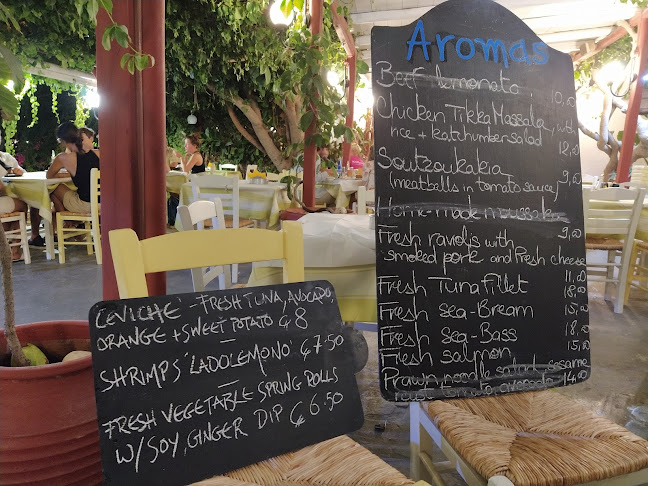 Aromas
Beef lemonata 10,00
Chicken Tikka Massala, with
rice + katchumber salad 12,00
Soutzoukakia
(meatballs in tomato sauce) 9,00
Home-made moussaka
Fresh raviolis with 9,00
smoked pork and fresh cheese
11,00
Fresh Tuna Fillet 18,00
Fresh Sea-Bream 15,00
Fresh sea-Bass 18,00
Fresh salmon 15,00
Prawn noodle salad sesame
tomato, avocado 14,00
CEVICHE FRESH TUNA, AVOCADO,
ORANGE + SWEET POTATO € 8
SHRIMPS 'LADOLEMONO' € 7.50
FRESH VEGETABLE SPRING ROLLS
W/SOY, GINGER DIP € 6.50